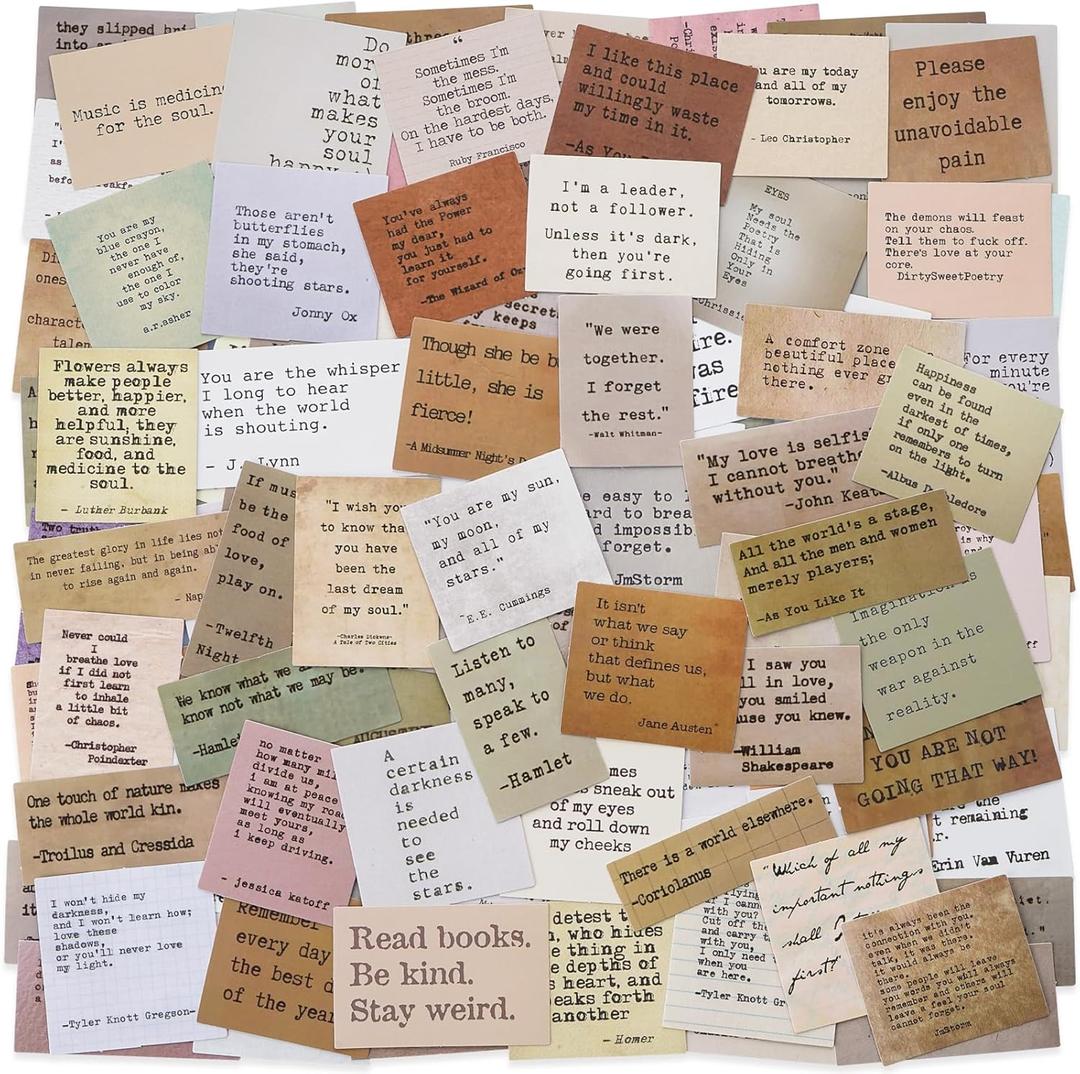 they slipped
Music is medicine
for the soul.
Do
more
of
what
makes
your
soul
"
Sometimes I'm
the mess.
Sometimes I'm
the broom.
On the hardest days,
I have to be both.
Ruby Francisco
I like this place
and could
willingly waste
my time in it.
-As You
are my today
and all of my
tomorrows.
- Leo Christopher
Please
enjoy the
unavoidable
pain
You are my
blue crayon,
the one I
never have
enough of,
the one I
use to color
my sky.
a.r.asher
Those aren't
butterflies
in my stomach,
she said,
they're
shooting stars.
Jonny Ox
You've always
had the Power
my dear,
you just had to
learn it
for yourself.
-The Wizard of Oz
I'm a leader,
not a follower.
Unless it's dark,
then you're
going first.
EYES
My soul
Needs the
Poetry
That is
Hiding
Only in
Your
Eyes
The demons will feast
on your chaos.
Tell them to fuck off.
There's love at your
core.
DirtySweetPoetry
keeps
Flowers always
make people
better, happier,
and more
helpful, they
are sunshine,
food, and
medicine to the
soul.
- Luther Burbank
You are the whisper
I long to hear
when the world
is shouting.
- J. Lynn
Though she be
little, she is
fierce!
-A Midsummer Night's
"We were
together.
I forget
the rest."
-Walt Whitman-
was
fire
A comfort zone
beautiful place
nothing ever
there.
For every
minute
you're
Happiness
can be found
even in the
darkest of times,
if only one
remembers to turn
on the light.
-Albus Dumbledore
"My love is
I cannot breathe
without you."
-John Keats
Two
The greatest glory in life lies not
in never failing, but in being
to rise again and again.
If
be the
food of
love,
play on.
-Twelfth
Night
"I wish you
to know that
you have
been the
last dream
of my soul."
-Charles Dickens-
A Tale of Two Cities
"You are my sun,
my moon,
and all of my
stars."
-E.E. Cummings
easy to
forget.
JmStorm
All the world's a stage,
And all the men and women
merely players;
-As You Like It
the only
weapon in the
war against
reality.
Never could
I
breathe love
if I did not
first learn
to inhale
a little bit
of chaos.
-Christopher
Poindexter
We know what we
know not what we may be.
-Hamlet
Listen to
many,
speak to
a few.
-Hamlet
It isn't
what we say
or think
that defines us,
but what
we do.
Jane Austen
I saw you
in love,
you smiled
you knew.
-William
Shakespeare
YOU ARE NOT
GOING THAT WAY!
One touch of nature makes
the whole world kin.
-Troilus and Cressida
no matter
how many
divide us,
i am at peace
knowing my road
will eventually
meet yours,
as long as
i keep driving.
- jessica katoff
A
certain
darkness
is
needed
to
see
the
stars.
sneak out
of my eyes
and roll down
my cheeks
There is a world elsewhere.
-Coriolanus
the
remaining
Erin Van Vuren
I won't hide my
darkness,
and I won't learn how;
love these
shadows,
or you'll never love
my light.
-Tyler Knott Gregson-
Remember
every day
the best
of the year
Read books.
Be kind.
Stay weird.
detest
who hides
thing in
depths of
heart, and
forth
another
- Homer
with you?
Cut off the
and carry
with you,
I only need
when you
are here.
-Tyler Knott
"Which of all my
important nothings
shall
first?"
it's always been the
connection with you.
even when we didn't
talk, it was there.
it would always be
there.
some people will leave
you words you will always
remember and others will
leave a feel your soul
cannot forget.
JmStorm